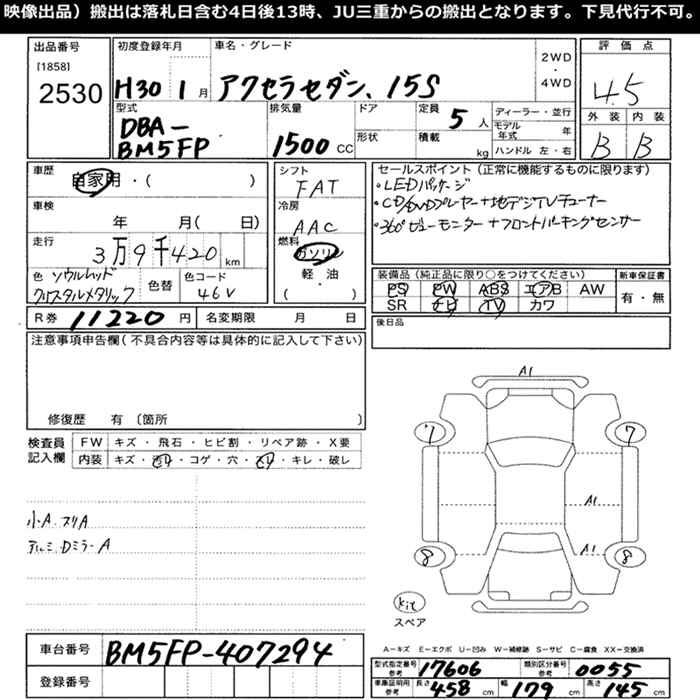 映像出品）搬出は落札日含む4日後13時、JU三重からの搬出となります。下見代行不可。
出品番号
[1858]
2530
初度登録年月
H30 1月
車名・グレード
アクセラセダン、15S
2WD
・
4WD
評価点
4.5
外装 内装
B B
型式
DBA-
BM5FP
排気量
1500 CC
ドア
形状
定員
5 人
積載
kg
ディーラー・並行
モデル年式 年
ハンドル 左・右
車歴
自家用・( )
車検
年 月( 日)
走行
3万9千420 km
色 ソウルレッド
クリスタルメタリック
色替
色コード
46V
シフト
FAT
冷房
AAC
燃料
ガソリン
軽・油
( )
セールスポイント（正常に機能するものに限ります）
・LEDパッケージ
・CD/DVDプレヤー+地デジTVチューナー
・360°ビューモニター+フロントパーキングセンサー
装備品（純正品に限り○をつけてください）
PS PW ABS エアB AW
SR ナビ TV カワ
新車保証書
有・無
R券 11220 円
名変期限 月 日
後日品
注意事項申告欄（不具合内容等は具体的に記入して下さい）
修復歴 有〔箇所 〕
検査員
記入欄
FW キズ・飛石・ヒビ割・リペア跡・X要
内装 キズ・汚れ・コゲ・穴・スレ・キレ・破レ
小A.スリA
アルミ、DミラーA
A1
7 7
A1
A1
8 8
kit
スペア
A－キズ E－エクボ U－凹み W－補修跡 S－サビ C－腐食 XX－交換済
車台番号 BM5FP-407294
登録番号
型式指定番号
参考
17606
類別区分番号
参考
0055
車庫証明用
参考
長さ 458 cm 幅 179 cm 高さ 145 cm